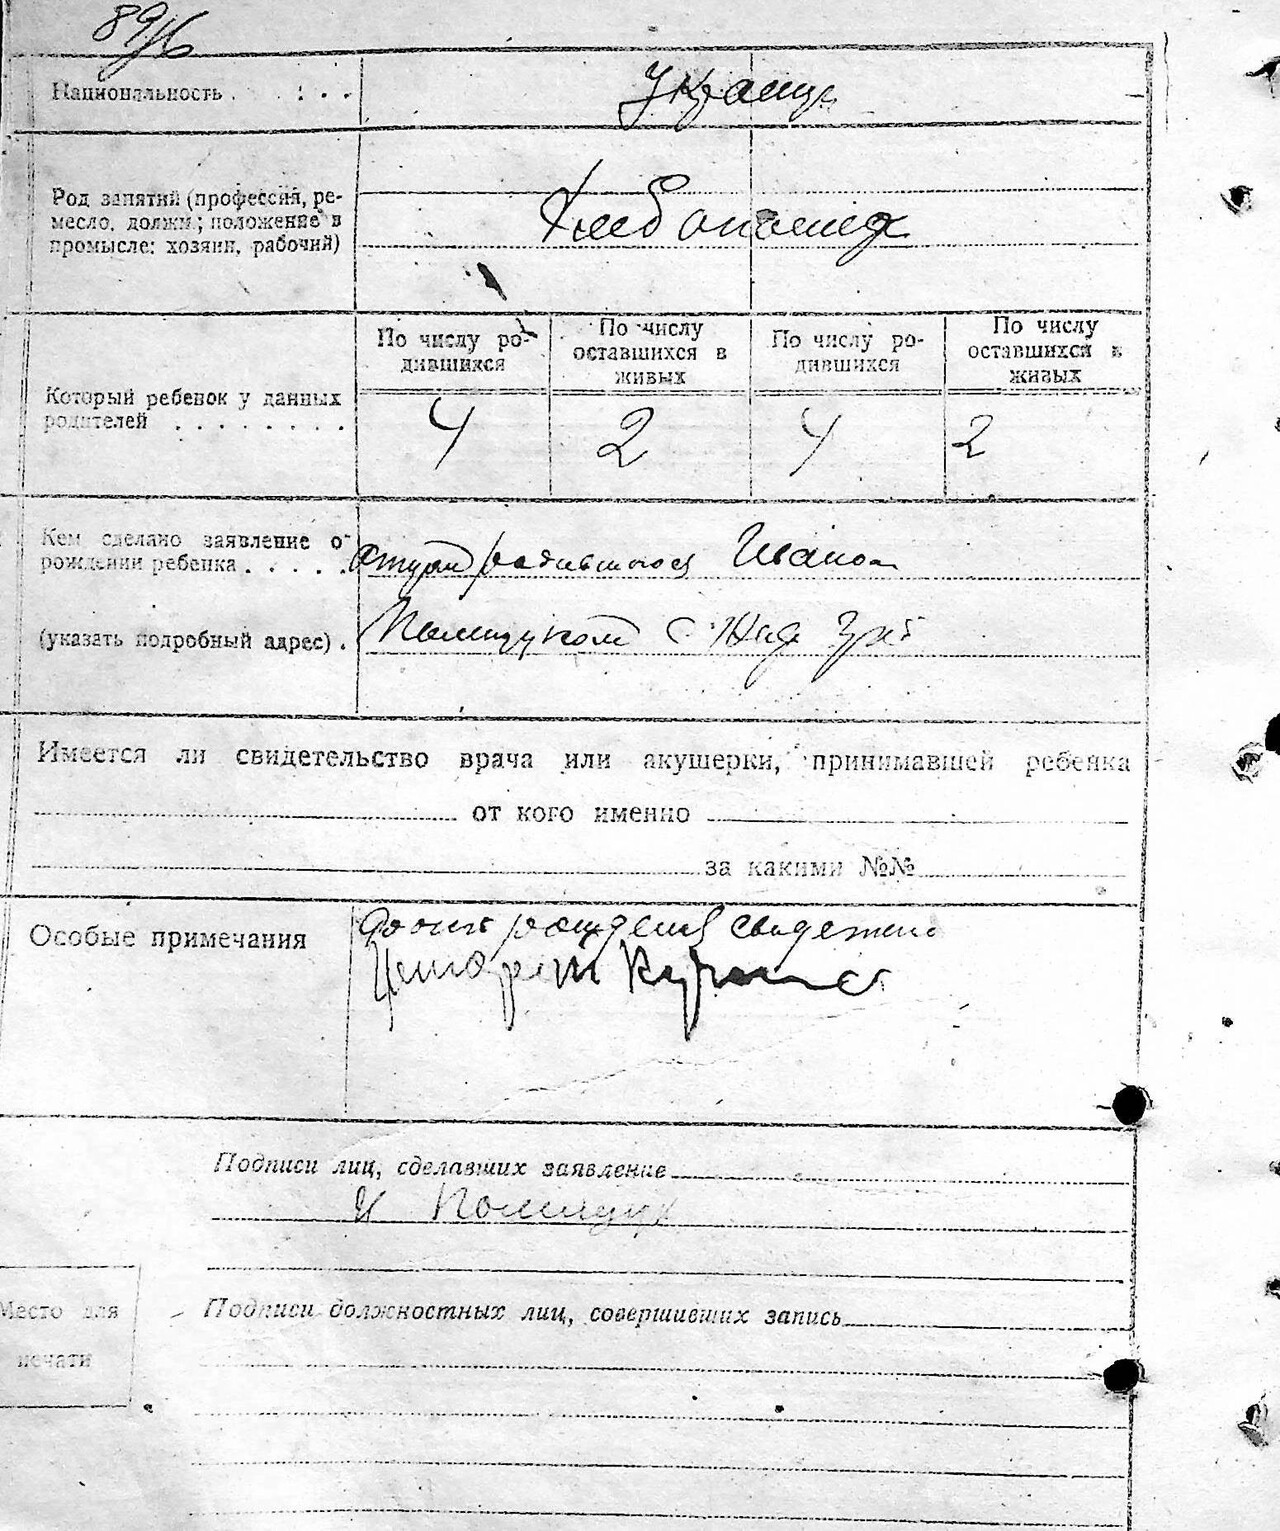 89/6
Национальность . : . .
Украинцы
Род занятий (профессия, ре-
месло, должн; положение в
промысле: хозяин, рабочий)
Хлебопашец
Который ребенок у данных
родителей . . . . . . . .
По числу ро-
дившихся
По числу
оставшихся в
живых
По числу ро-
дившихся
По числу
оставшихся в
живых
4 2 4 2
Кем сделано заявление о
рождении ребенка . . . . .
родившегося Иваном
(указать подробный адрес) .
Полищуком с.
Имеется ли свидетельство врача или акушерки, принимавшей ребенка
от кого именно
за какими №№
Особые примечания
рождения
Подписи лиц, сделавших заявление
И Полищук
Место для
печати
Подписи должностных лиц, совершивших запись